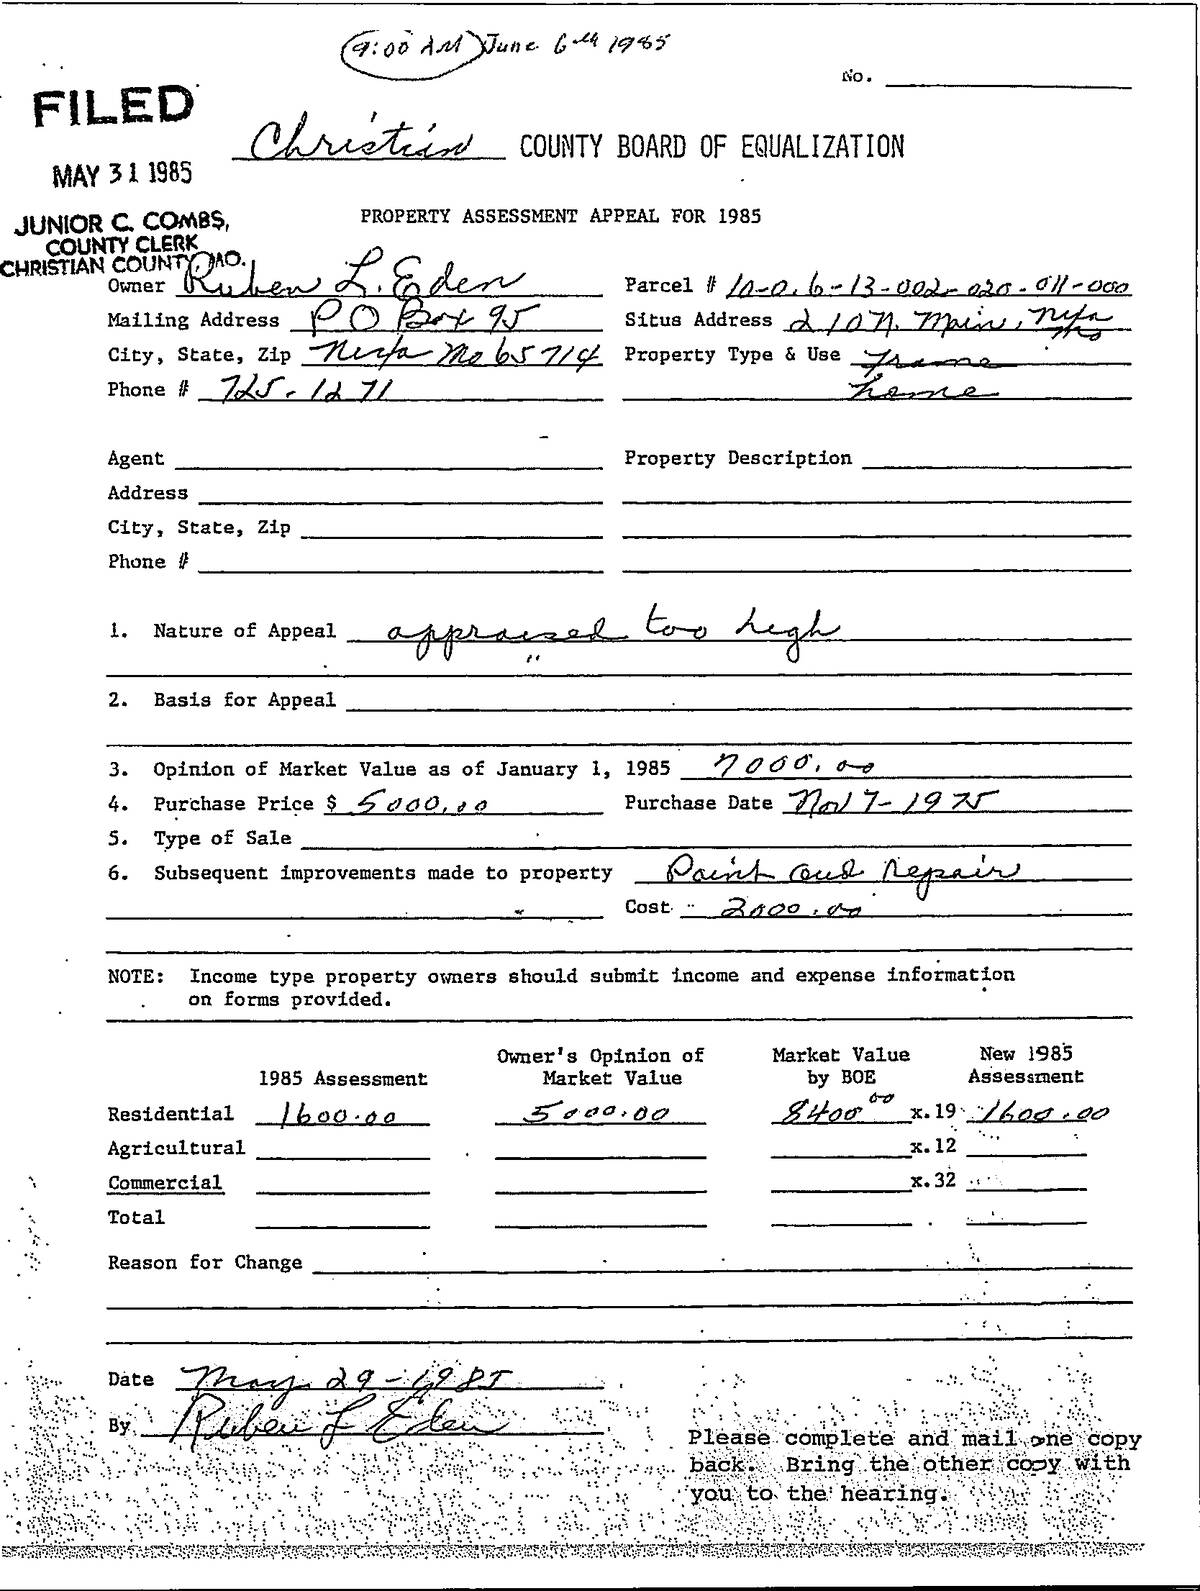 9:00 AM June 6th 1985
No.
FILED
MAY 31 1985
JUNIOR C. COMBS,
COUNTY CLERK
CHRISTIAN COUNTY, MO.
Christian COUNTY BOARD OF EQUALIZATION
PROPERTY ASSESSMENT APPEAL FOR 1985
Owner Ruben L. Eden Parcel # 10-0.6-13-002-020-011-000
Mailing Address PO Box 95 Situs Address 210 N. Main, Nixa Mo
City, State, Zip Nixa Mo 65714 Property Type & Use Frame
Phone # 725-1271 home
Agent Property Description
Address
City, State, Zip
Phone #
1. Nature of Appeal appraised too high
2. Basis for Appeal
3. Opinion of Market Value as of January 1, 1985 7000.00
4. Purchase Price $ 5000.00 Purchase Date Nov 7-1975
5. Type of Sale
6. Subsequent improvements made to property Paint and repair
Cost 2000.00
NOTE: Income type property owners should submit income and expense information
on forms provided.
Owner's Opinion of Market Value New 1985
1985 Assessment Market Value by BOE Assessment
Residential 1600.00 5000.00 8400 00 x.19 1600.00
Agricultural x.12
Commercial x.32
Total
Reason for Change
Date May 29-1985
By Ruben L Eden
Please complete and mail one copy
back. Bring the other copy with
you to the hearing.